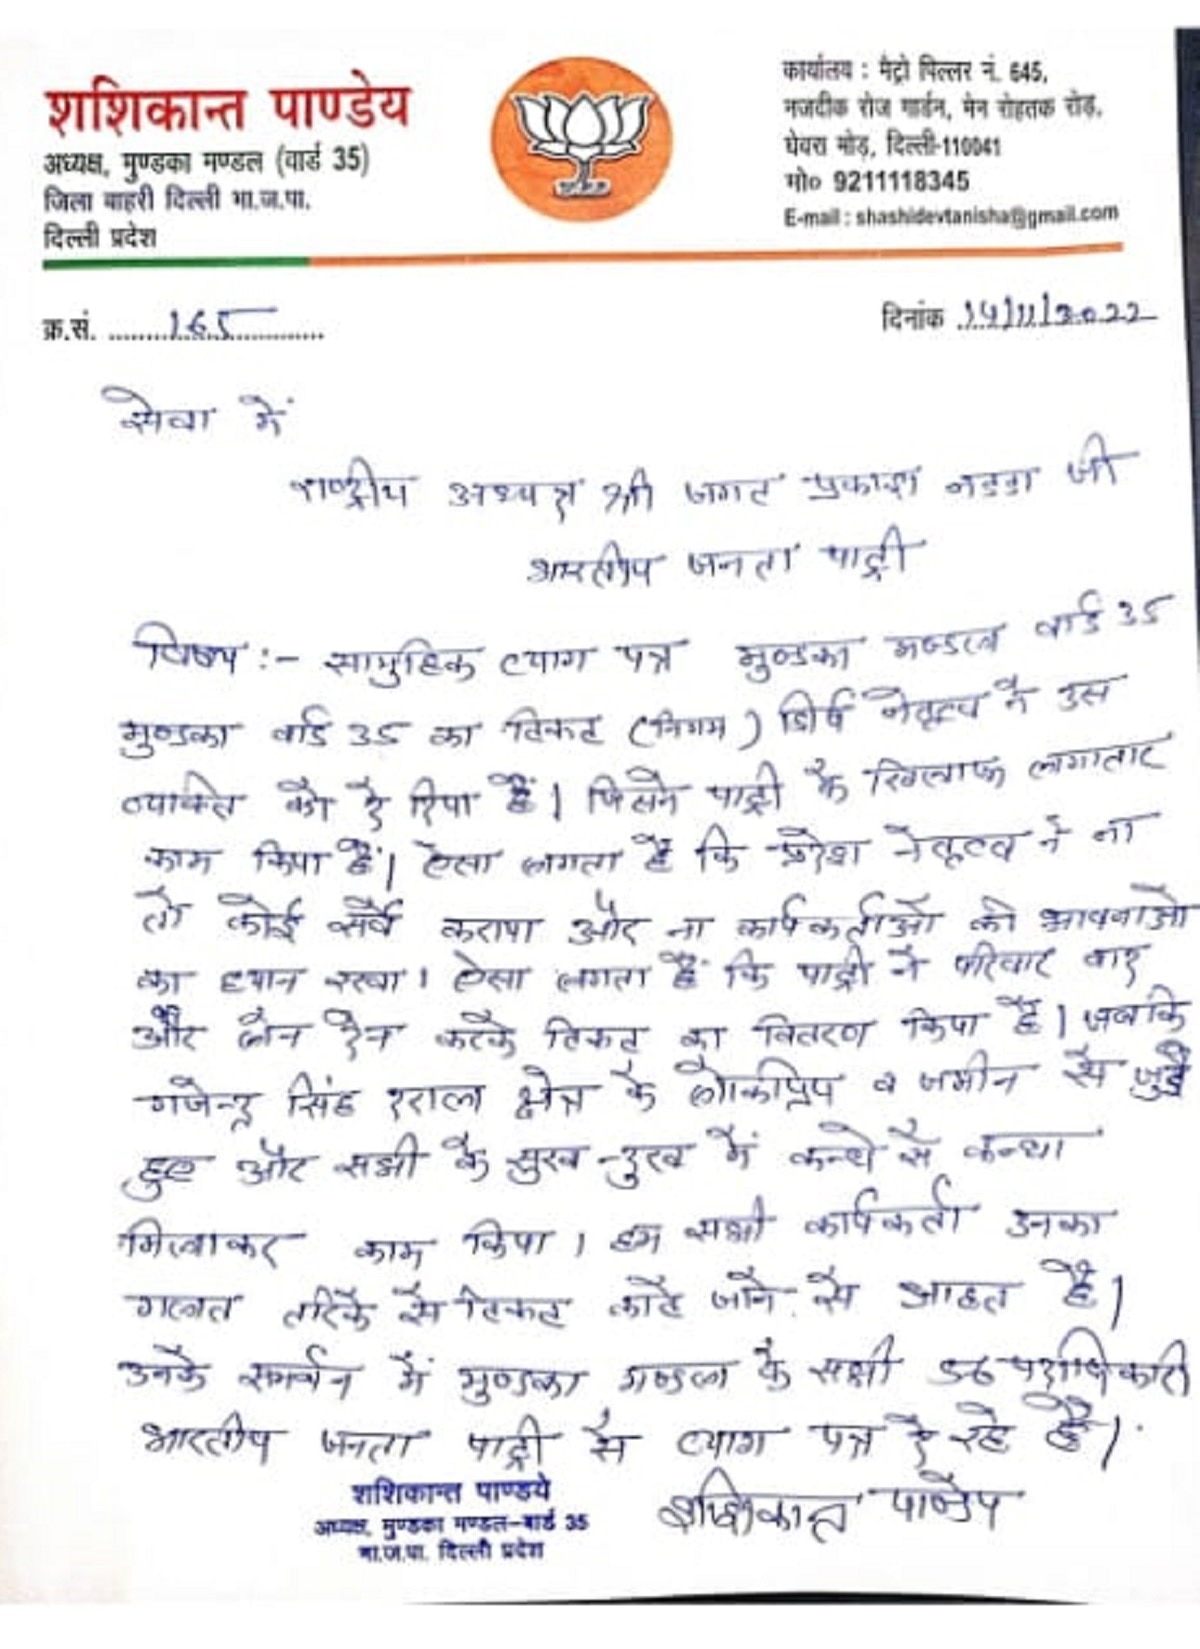 शशिकान्त पाण्डेय
अध्यक्ष, मुण्डका मण्डल (वार्ड 35)
जिला बाहरी दिल्ली भा.ज.पा.
दिल्ली प्रदेश
कार्यालय : मैट्रो पिल्लर नं. 645,
नजदीक रोज गार्डन, मेन रोहतक रोड़,
घेवरा मोड़, दिल्ली-110041
मो० 9211118345
E-mail : shashidevtanisha@gmail.com
क्र.सं. 165
दिनांक 14/11/2022
सेवा में
राष्ट्रीय अध्यक्ष श्री जगत प्रकाश नडडा जी
भारतीय जनता पाट्री
विषय :- सामुहिक त्याग पत्र मुण्डका मण्डल वार्ड 35
मुण्डका वार्ड 35 का टिकट (निगम) शीर्ष नेतृत्व ने उस
व्यक्ति को दे दिया हैं। जिसने पाट्री के खिलाफ लगातार
काम किया हैं। ऐसा लगता है कि प्रदेश नेतृत्व ने ना
तो कोई सर्वे कराया और ना कार्यकर्ताओं की भावनाओं
का ध्यान रखा। ऐसा लगता हैं कि पाट्री ने परिवार वाद
और लेन देन करके टिकट का वितरण किया है। जबकि
गजेन्द्र सिंह दराल क्षेत्र के लोकप्रिय व जमीन से जुड़े
हुए और सभी के सुख-दुख में कन्धे से कन्धा
मिलाकर काम किया। हम सभी कार्यकर्ता उनका
गलत तरिके से टिकट काटे जाने से आहत है।
उनके समर्थन में मुण्डका मण्डल के सभी 56 पदाधिकारी
भारतीय जनता पाट्री से त्याग पत्र दे रहे है।
शशिकान्त पाण्डये
अध्यक्ष, मुण्डका मण्डल-वार्ड 35
भा.ज.पा. दिल्ली प्रदेश
शशिकान्त पाण्डेय